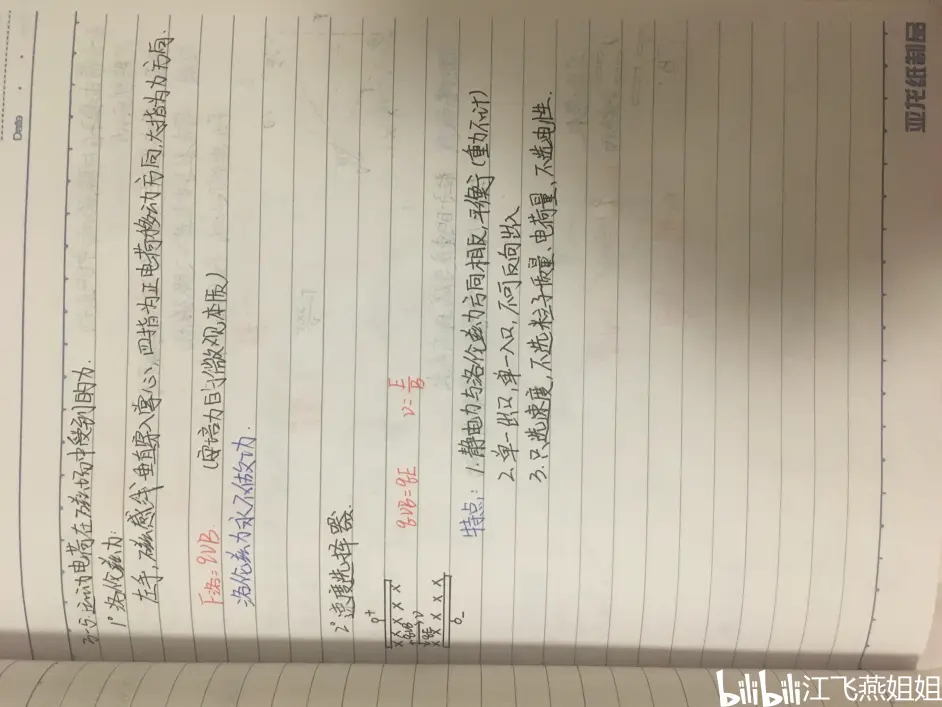 Date
3-5运动电荷在磁场中受到的力.
1° 洛伦兹力:
左手, 磁感线垂直穿入掌心, 四指为正电荷移动方向, 大指为力方向.
F洛=qvB. (安培力的微观本质)
洛伦兹力永不做功.
2° 速度选择器.
qvB=qE v=E/B
特点: 1.静电力与洛伦兹力方向相反,平衡(重力不计)
2.单一出口,单一入口,不可反向出入
3.只选速度,不选粒子质量、电荷量、不选电性.
亚龙纸制品
bilibili 江飞燕姐姐